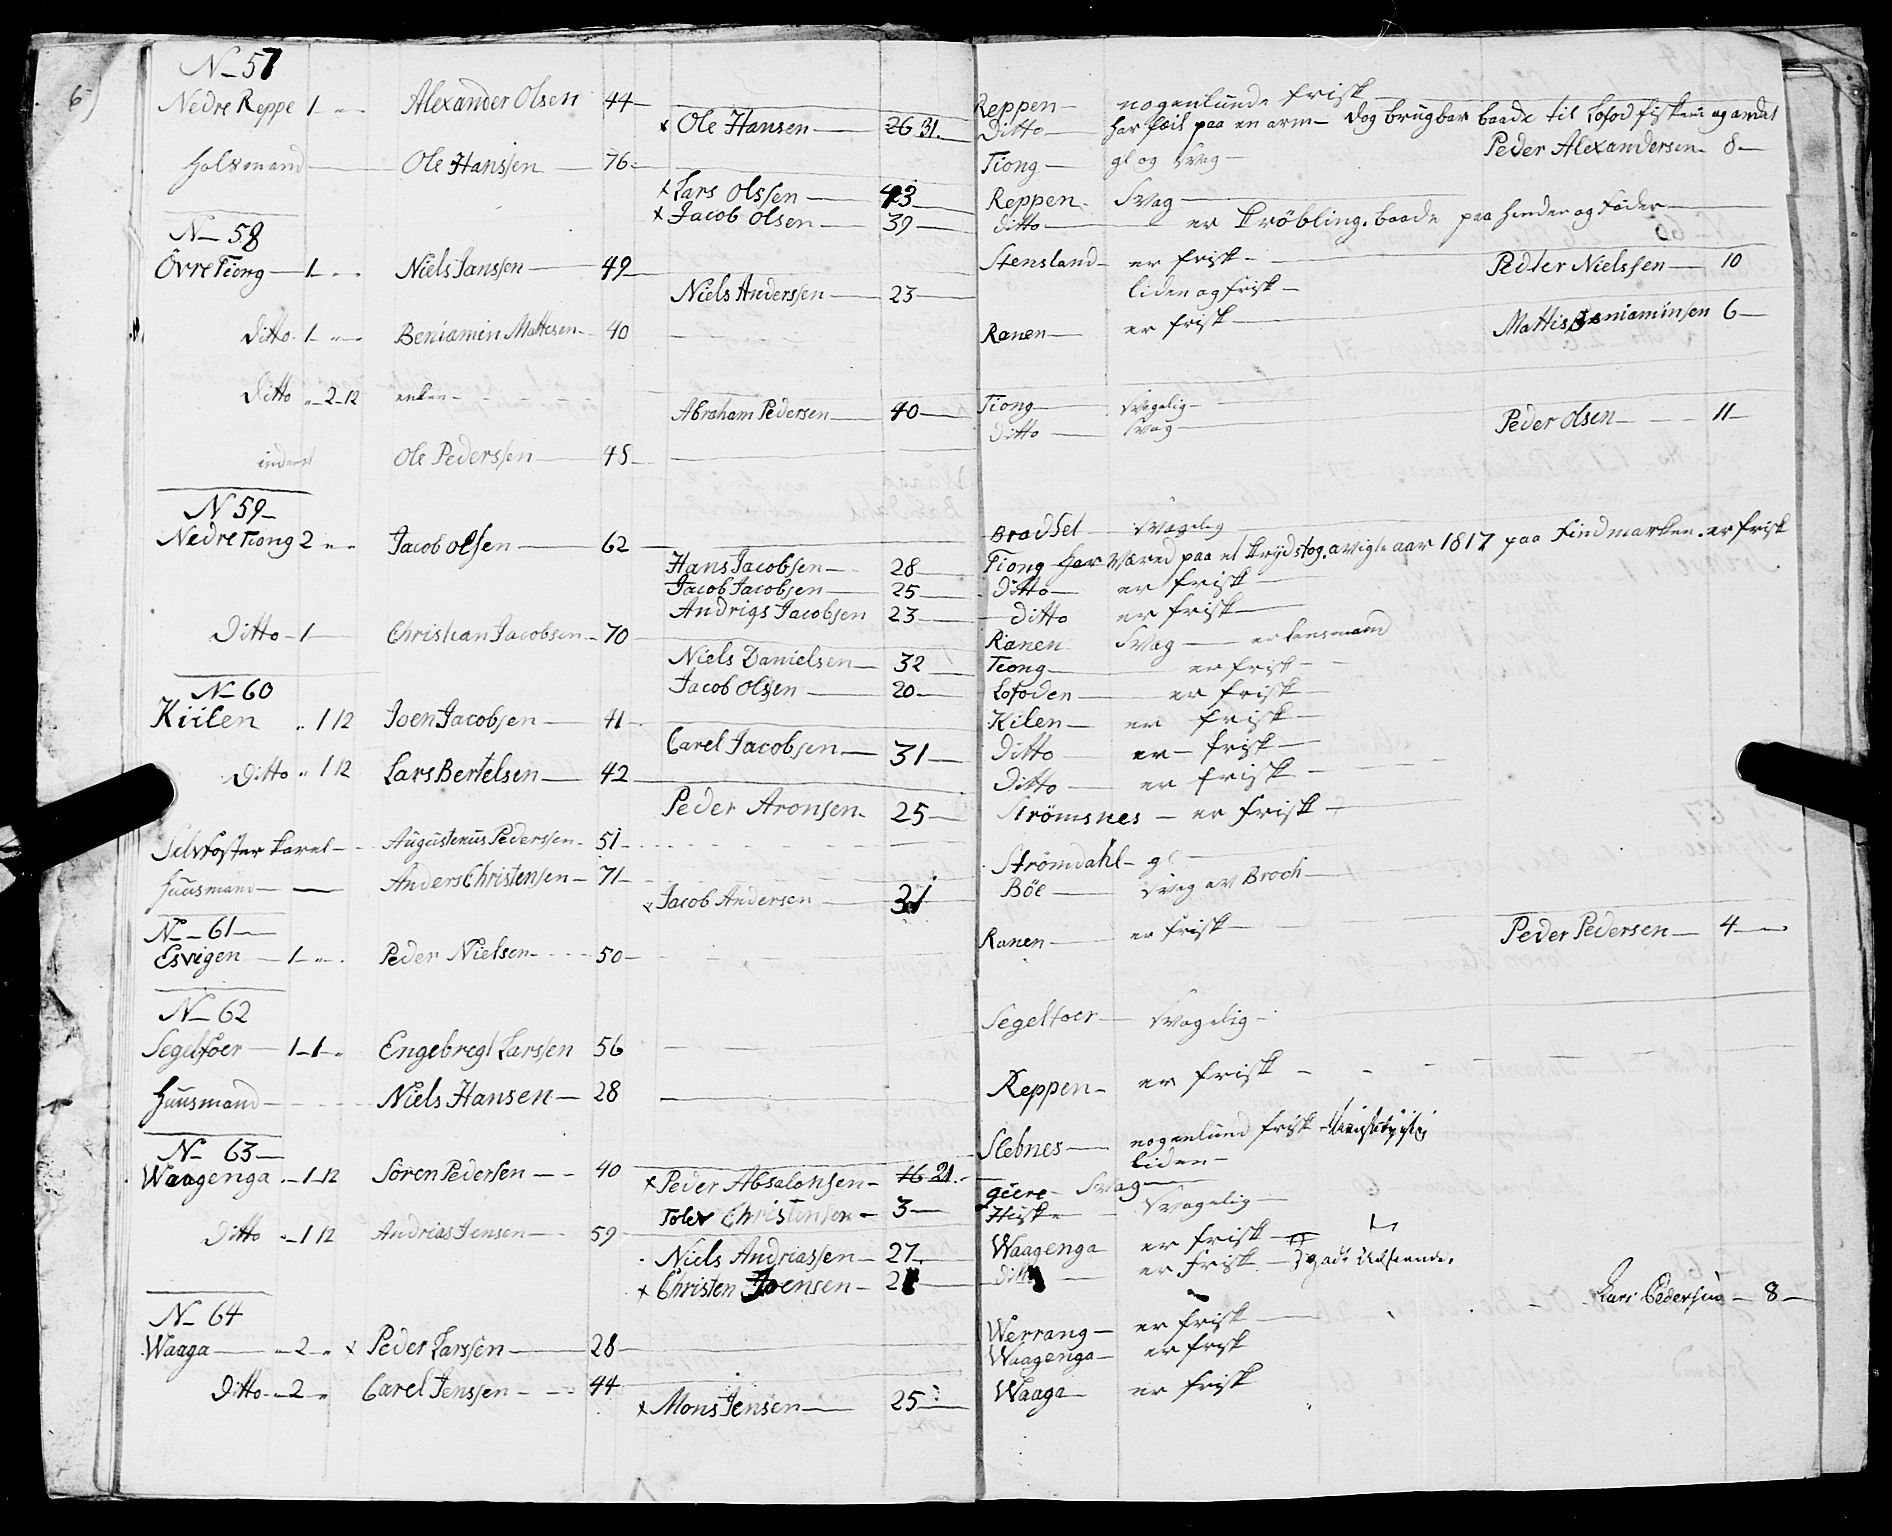 6)
N 57
Nedre Reppe 1 Alexander Olsen 44 Reppen nogenlunde frisk
x Ole Hansen 26 31. Ditto har feil paa en arm dog brugbar baade til Lofod fiskerie og andet
Peder Alexandersen 8
Ole Hanssen 76 Tiong gl og svag
x Lars Olssen 43 Reppen Svag
x Jacob Olsen 39 Ditto er Krøbling baade paa hender og Føder
N 58
Övre Tiong 1 Niels Janssen 49 Stensland er frisk Peder Nielssen 10
Niels Anderssen 23 liden og frisk
Ditto 1 Beniamin Mattesen 40 Ranen er frisk Mattis Beniaminsen 6
Ditto 2 12 enken
Abraham Pedersen 40 Tiong svagelig
inderst Ole Pederssen 45 Ditto Svag Peder Olsen 11
N 59
Nedre Tiong 2 Jacob Olsen 62 Bradset svagelig
Hans Jacobsen 28 Tiong har været paa et Krydstog aar 1817 paa Findmarken. er frisk
Jacob Jacobsen 25 Ditto er frisk
Andrigs Jacobsen 23 Ditto er frisk
Ditto 1 Christian Jacobsen 70 Ranen Svag er Lensmand
Niels Danielsen 32 Tiong er frisk
Jacob Olsen 20 Lofoden er frisk
N 60
Kiilen 1 12 Joen Jacobsen 41 Kilen er frisk
Carel Jacobsen 31 Ditto er frisk
Ditto 1 12 Lars Bertelsen 42 Ditto er frisk
Peder Aronsen 25 Strömsnes er frisk
Selvfoster Karel Augustenus Pederssen 51 Strömdahl
Huusmand Anders Christensen 71 Böe svag av Broch
x Jacob Andersen 31
N 61
Esvigen 1 Peder Nielsen 50 Ranen er frisk Peder Pedersen 4
N 62
Segelfoer 1 1 Engebregt Larssen 56 Segelfoer svagelig
Huusmand Niels Hansen 28 Reppen er frisk
N 63
Waagenga 1 12 Sören Pedersen 40 Slebnes nogenlund frisk
x Peder Absalonsen 16 21. liden
Tolev Christensen 3 giere Svag
Ditto 1 12 Andrias Jensen 59 Hiske svagelig
Niels Andriassen 27 Waagenga er frisk
x Christen Joensen 21 Ditto er frisk
Lars Pedersen 8
N 64
Waaga 2 x Peder Larssen 28 Werrang er frisk
Waagenga er frisk
Ditto 2 Carel Jenssen 44
x Mons Jensen 25 Waaga er frisk